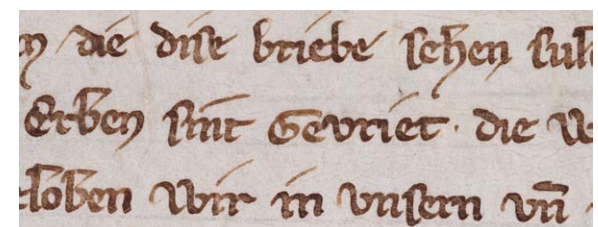 die dise briebe sehen sul
Erben sint Gevriet · die w
loben wir in vnsern vn̄